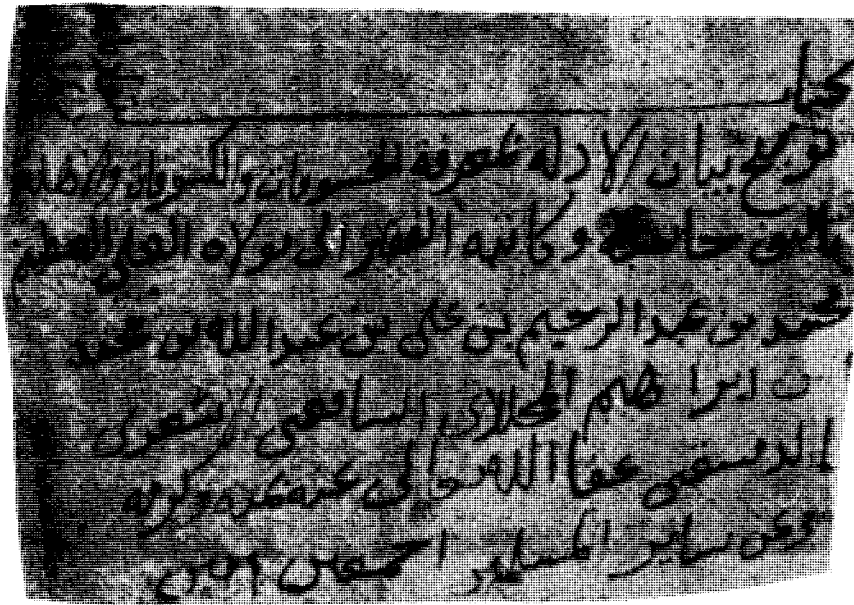 كتاب
توضيح بيان الادله لمعرفه الخسوفات والكسوفاة والاهله
تاليف جامعه وكاتبه الفقير الى مولاه العلي العظيم
محمد بن عبد الرحيم بن علي بن عبد الله بن محمد
بن ابراهيم المحلاتي الشافعي الاشعري
الدمشقي عفا الله تعالى عنه بمنه وكرمه
وعن ساير المسلمين اجمعين امين